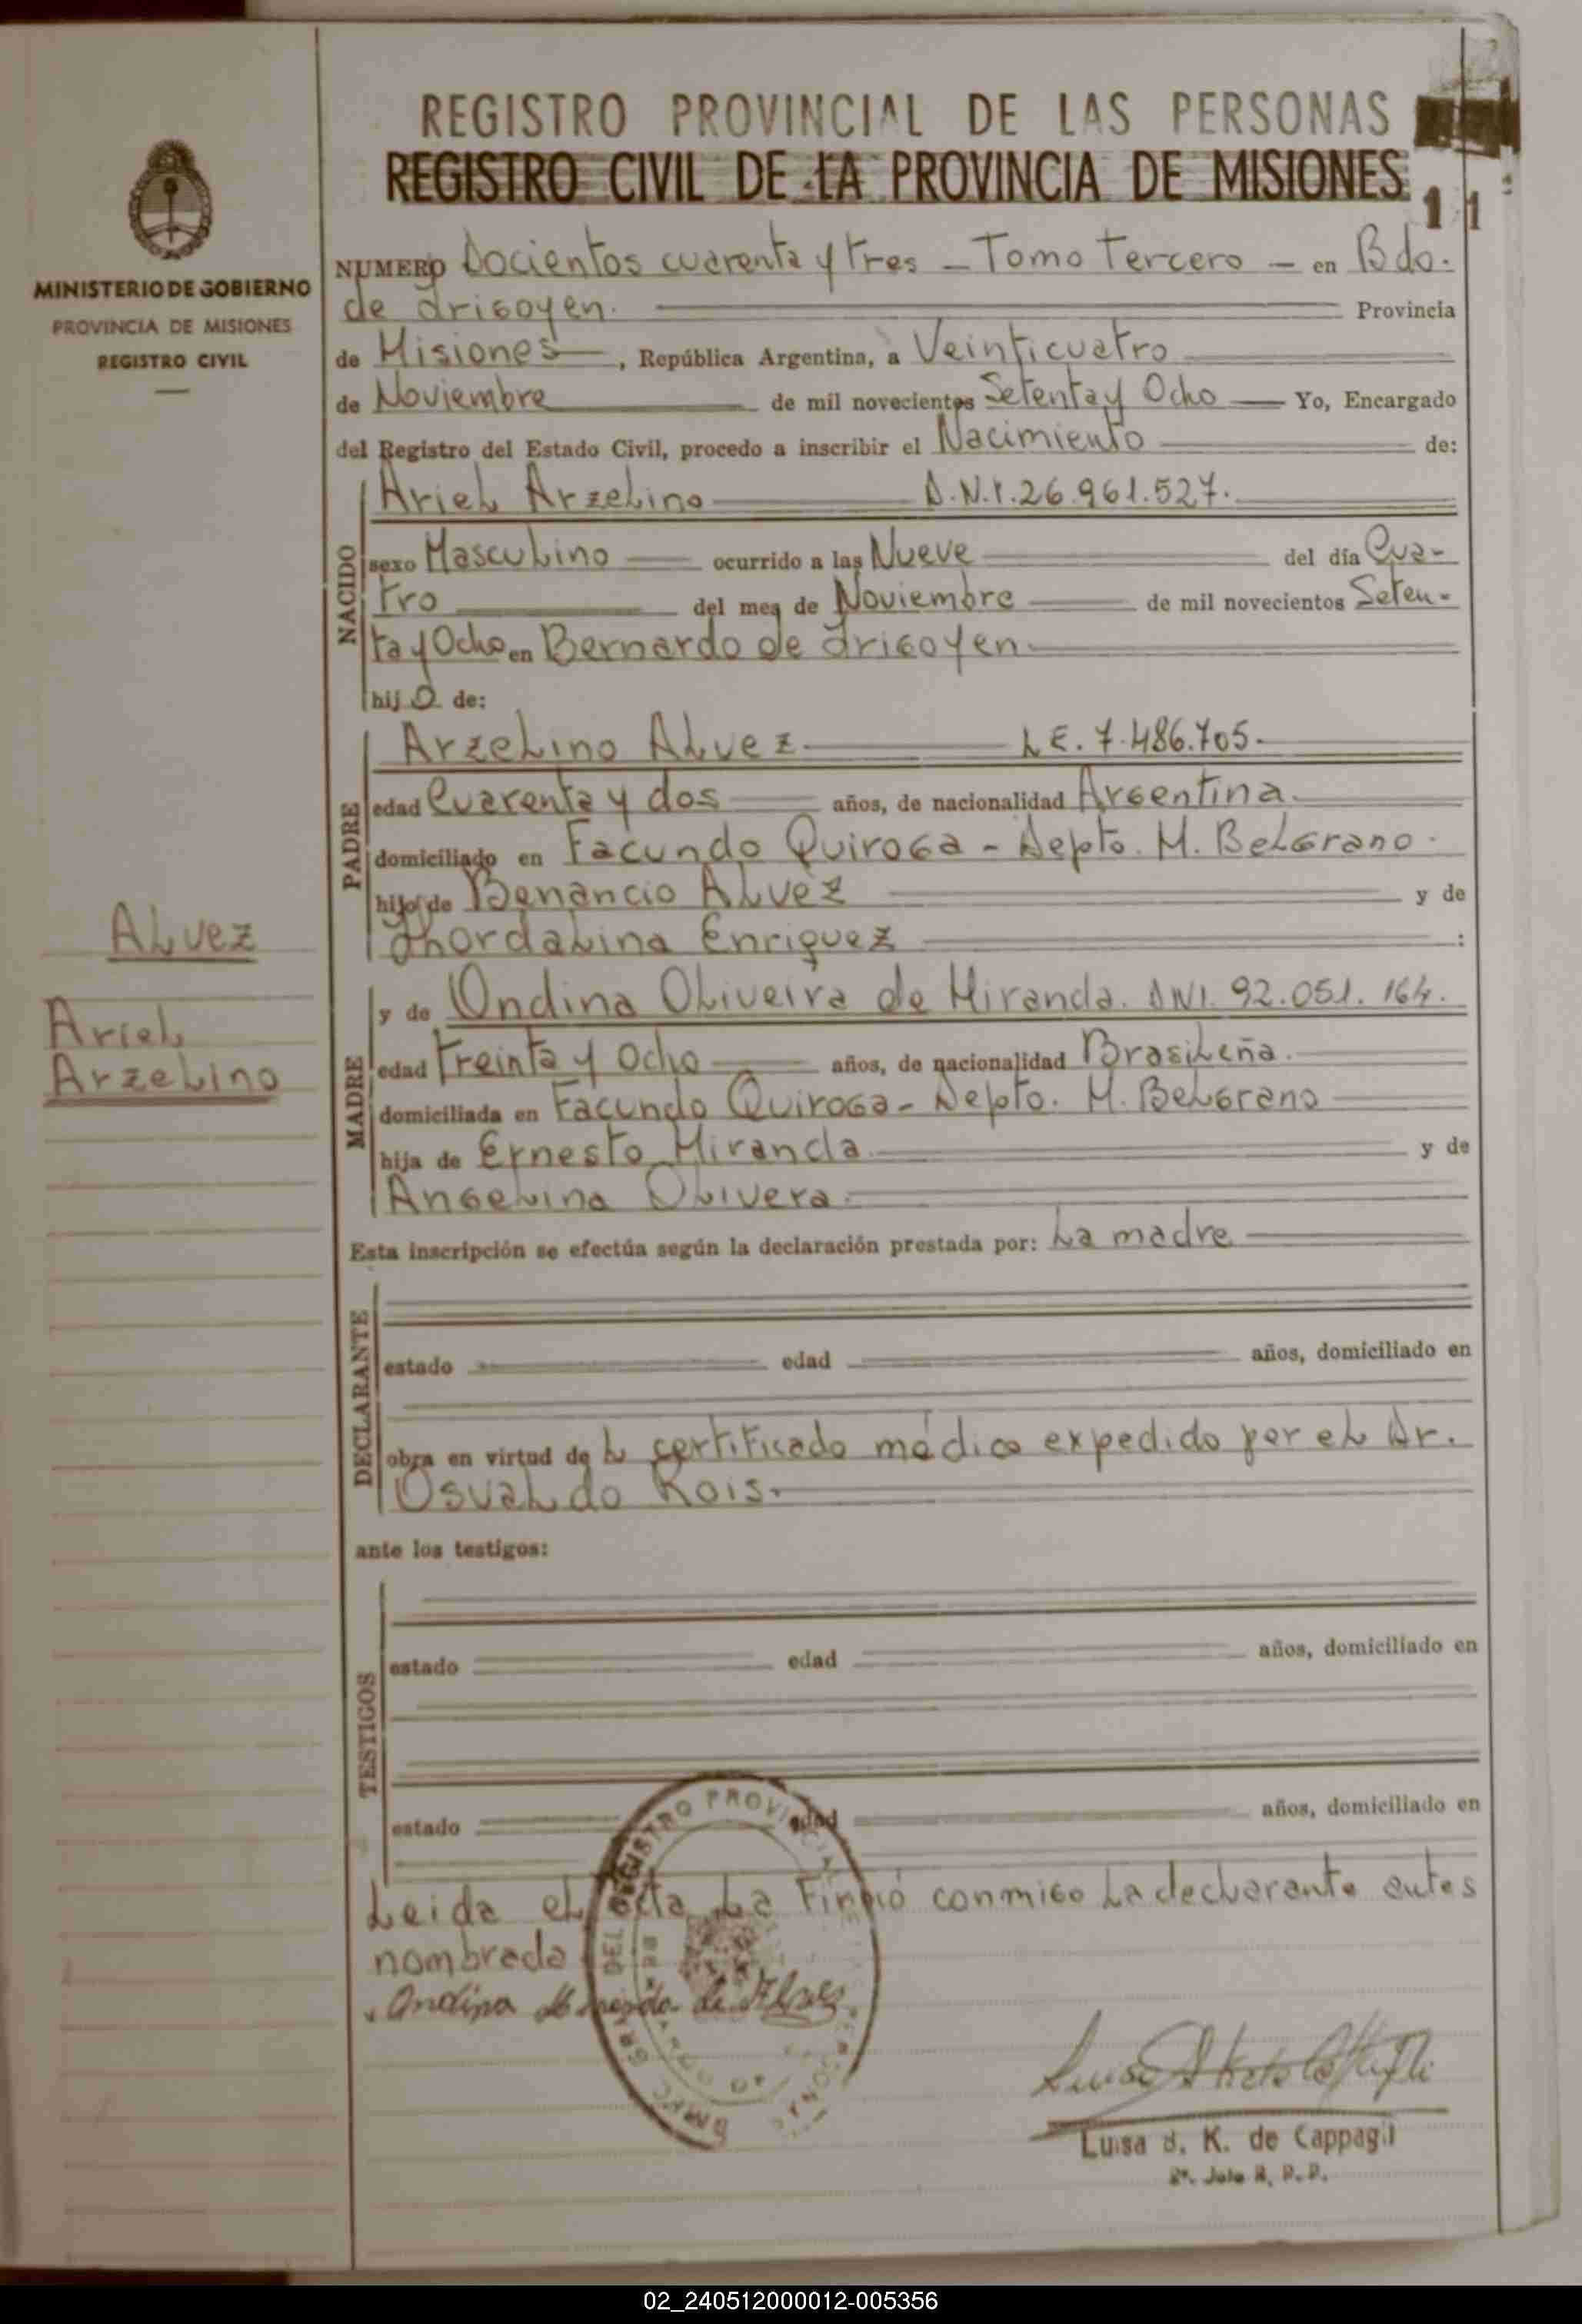 REGISTRO PROVINCIAL DE LAS PERSONAS
REGISTRO CIVIL DE LA PROVINCIA DE MISIONES
11
MINISTERIO DE GOBIERNO
PROVINCIA DE MISIONES
REGISTRO CIVIL
NUMERO Docientos cuarenta y tres - Tomo Tercero - en Bdo.
de Irigoyen. Provincia
de Misiones, República Argentina, a Veinticuatro
de Noviembre de mil novecientos Setenta y Ocho Yo, Encargado
del Registro del Estado Civil, procedo a inscribir el Nacimiento de:
NACIDO
Ariel Arzelino D.N.I. 26.961.527.
sexo Masculino ocurrido a las Nueve del día Cua-
tro del mes de Noviembre de mil novecientos Seten-
ta y Ocho en Bernardo de Irigoyen.
hijo de:
PADRE
Arzelino Alvez L.E. 7.486.705.
edad Cuarenta y dos años, de nacionalidad Argentina.
domiciliado en Facundo Quiroga - Depto. M. Belgrano.
hijo de Benancio Alvez y de
Jhordalina Enriquez :
Alvez
Ariel
Arzelino
MADRE
y de Ondina Oliveira de Miranda. DNI. 92.051.164.
edad Treinta y Ocho años, de nacionalidad Brasileña.
domiciliada en Facundo Quiroga - Depto. M. Belgrano
hija de Ernesto Miranda y de
Angelina Olivera.
Esta inscripción se efectúa según la declaración prestada por: La madre
DECLARANTE
estado edad años, domiciliado en
obra en virtud de l certificado médico expedido por el Dr.
Osvaldo Rois.
ante los testigos:
TESTIGOS
estado edad años, domiciliado en
estado edad años, domiciliado en
Leida el acta La Firmó conmigo La declarante antes
nombrada
Ondina Miranda de Alves
DEL REGISTRO PROVINCIAL
Luisa K. de Cappagli
02_240512000012-005356